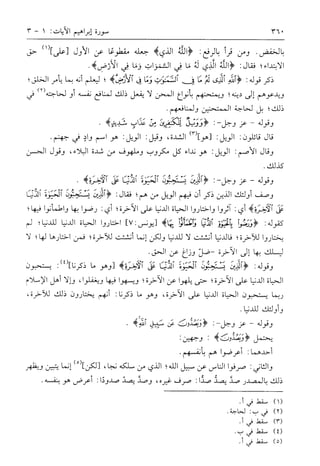 ٣٦٠ سورة إبراهيم الآيات: ١ - ٣
بالخفض. ومن قرأ بالرفع: ﴿اللَّهُ الَّذِي﴾ جعله مقطوعًا عن الأول [على](١) حق
الابتداء؛ فقال: ﴿اللَّهُ الَّذِي لَهُ مَا فِي السَّمَوَاتِ وَمَا فِي الْأَرْضِ﴾.
ذكر قوله: ﴿اللَّهِ الَّذِي لَهُ مَا فِي السَّمَوَاتِ وَمَا فِي الْأَرْضِ﴾؛ ليعلم أنه بما يأمر الخلق؛
ويدعوهم إلى دينه؛ ويمتحنهم بأنواع المحن لا يفعل ذلك لمنافع نفسه أو لحاجته(٢) في
ذلك؛ بل لحاجة الممتحنين ولمنافعهم.
وقوله - عز وجل-: ﴿وَوَيْلٌ لِلْكَافِرِينَ مِنْ عَذَابٍ شَدِيدٍ﴾.
قال قائلون: الويل: [هو](٣) الشدة، وقيل: الويل: هو اسم وادٍ في جهنم.
وقال الأصم: الويل: هو نداء كل مكروب وملهوف من شدة البلاء، وقول الحسن
كذلك.
وقوله - عز وجل-: ﴿الَّذِينَ يَسْتَحِبُّونَ الْحَيَاةَ الدُّنْيَا عَلَى الْآخِرَةِ﴾.
وصف أولئك الذين ذكر أن فيهم الويل من هم؛ فقال: ﴿الَّذِينَ يَسْتَحِبُّونَ الْحَيَاةَ الدُّنْيَا
عَلَى الْآخِرَةِ﴾ أي: آثروا واختاروا الحياة الدنيا على الآخرة؛ أي: رضوا بها واطمأنوا فيها؛
كقوله: ﴿وَرَضُوا بِالْحَيَاةِ الدُّنْيَا وَاطْمَأَنُّوا بِهَا﴾ [يونس:٧] اختاروا الحياة الدنيا للدنيا، لم
يختاروا للآخرة؛ فالدنيا أنشئت لا للدنيا ولكن إنما أنشئت للآخرة؛ فمن اختارها لها؛ لا
ليسلك بها إلى الآخرة -ضل وزاغ عن الحق.
وقوله: ﴿الَّذِينَ يَسْتَحِبُّونَ الْحَيَاةَ الدُّنْيَا عَلَى الْآخِرَةِ﴾ [وهو ما ذكرنا](٤). يستحبون
الحياة الدنيا على الآخرة؛ حتى يلهوا عن الآخرة؛ ويسهوا فيها ويغفلوا، وإلا أهل الإسلام
ربما يستحبون الحياة الدنيا على الآخرة، وهو ما ذكرنا: أنهم يختارون ذلك للآخرة،
وأولئك للدنيا.
وقوله - عز وجل-: ﴿وَيَصُدُّونَ عَنْ سَبِيلِ اللَّهِ﴾.
يحتمل ﴿وَيَصُدُّونَ﴾: وجهين:
أحدهما: أعرضوا هم بأنفسهم.
والثاني: صرفوا الناس عن سبيل الله؛ الذي من سلكه نجا، [لكن](٥) إنما يتبين ويظهر
ذلك بالمصدر صدَّ يصدُّ صدًّا: صرف غيره، وصدَّ يصدُّ صدودًا: أعرض هو بنفسه.
(١) سقط في أ.
(٢) في ب: لحاجة.
(٣) سقط في أ.
(٤) سقط في ب.
(٥) سقط في أ.